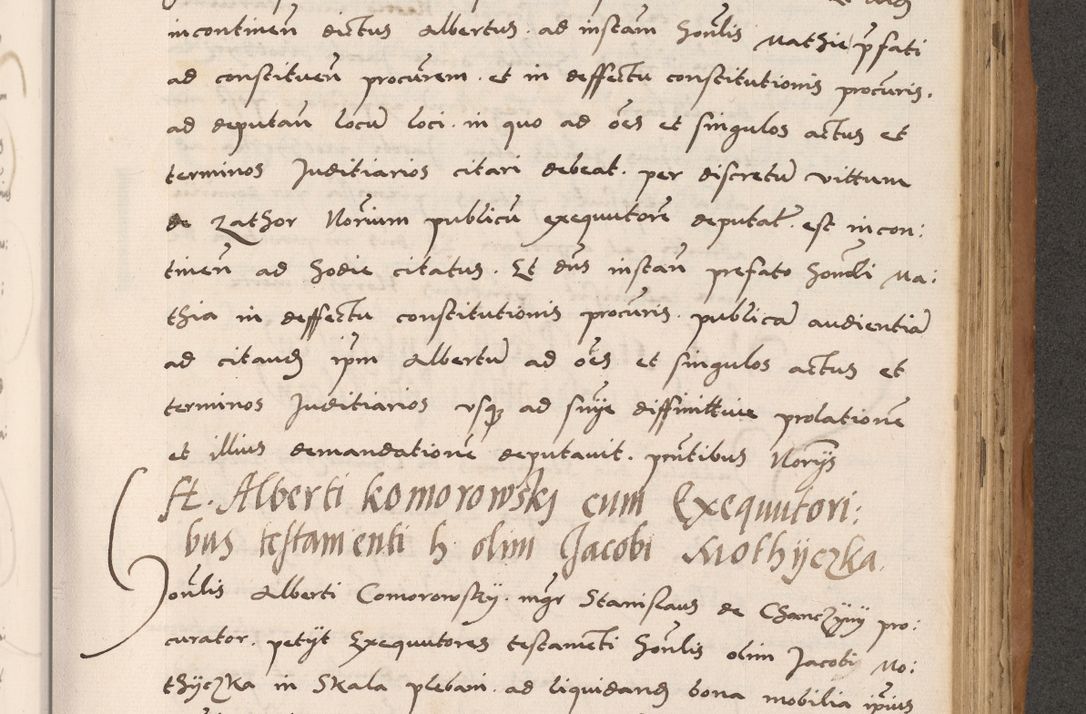 incontinen̄ dictus Albertus . ad instam̄ hoīulis Mathie p̄fati
ad constituen̄ procūrem . et in deffectu constitutionis procūris .
ad deputan̄ locū loci . in quo ad oēs et singulos actus et
terminos Juditiarios citari debeat . per discretū vittum
de Zathor Nor̄ium publicū exequutorē deputat̄ . est incon:
tinen̄ ad hodie citatus . Et dn̄s instan̄ prefato hon̄oli Ma:
thia in deffectu constitutionis procūris . publicā audientiā
ad citand ip̄m Albertū ad oēs et singulos actus et
terminos Juditiarios vsq̨ ad sn̄ye diffinittiue prolationē
et illius demandationē deputauit . pn̄tibus Norȳs
ft . Alberti Komorowskj cum Exequutori:
bus testamenti h . olim Jacobi Mothÿczka .
Hon̄lis Alberti Comorowsky . mḡr Stanislaus de Chanczyny pro:
curator . petÿt Exequutores testamēti hon̄lis olim Jacobi Mo:
thÿczka in Skala plebani . ad liquidand bona mobilia ip̄ius